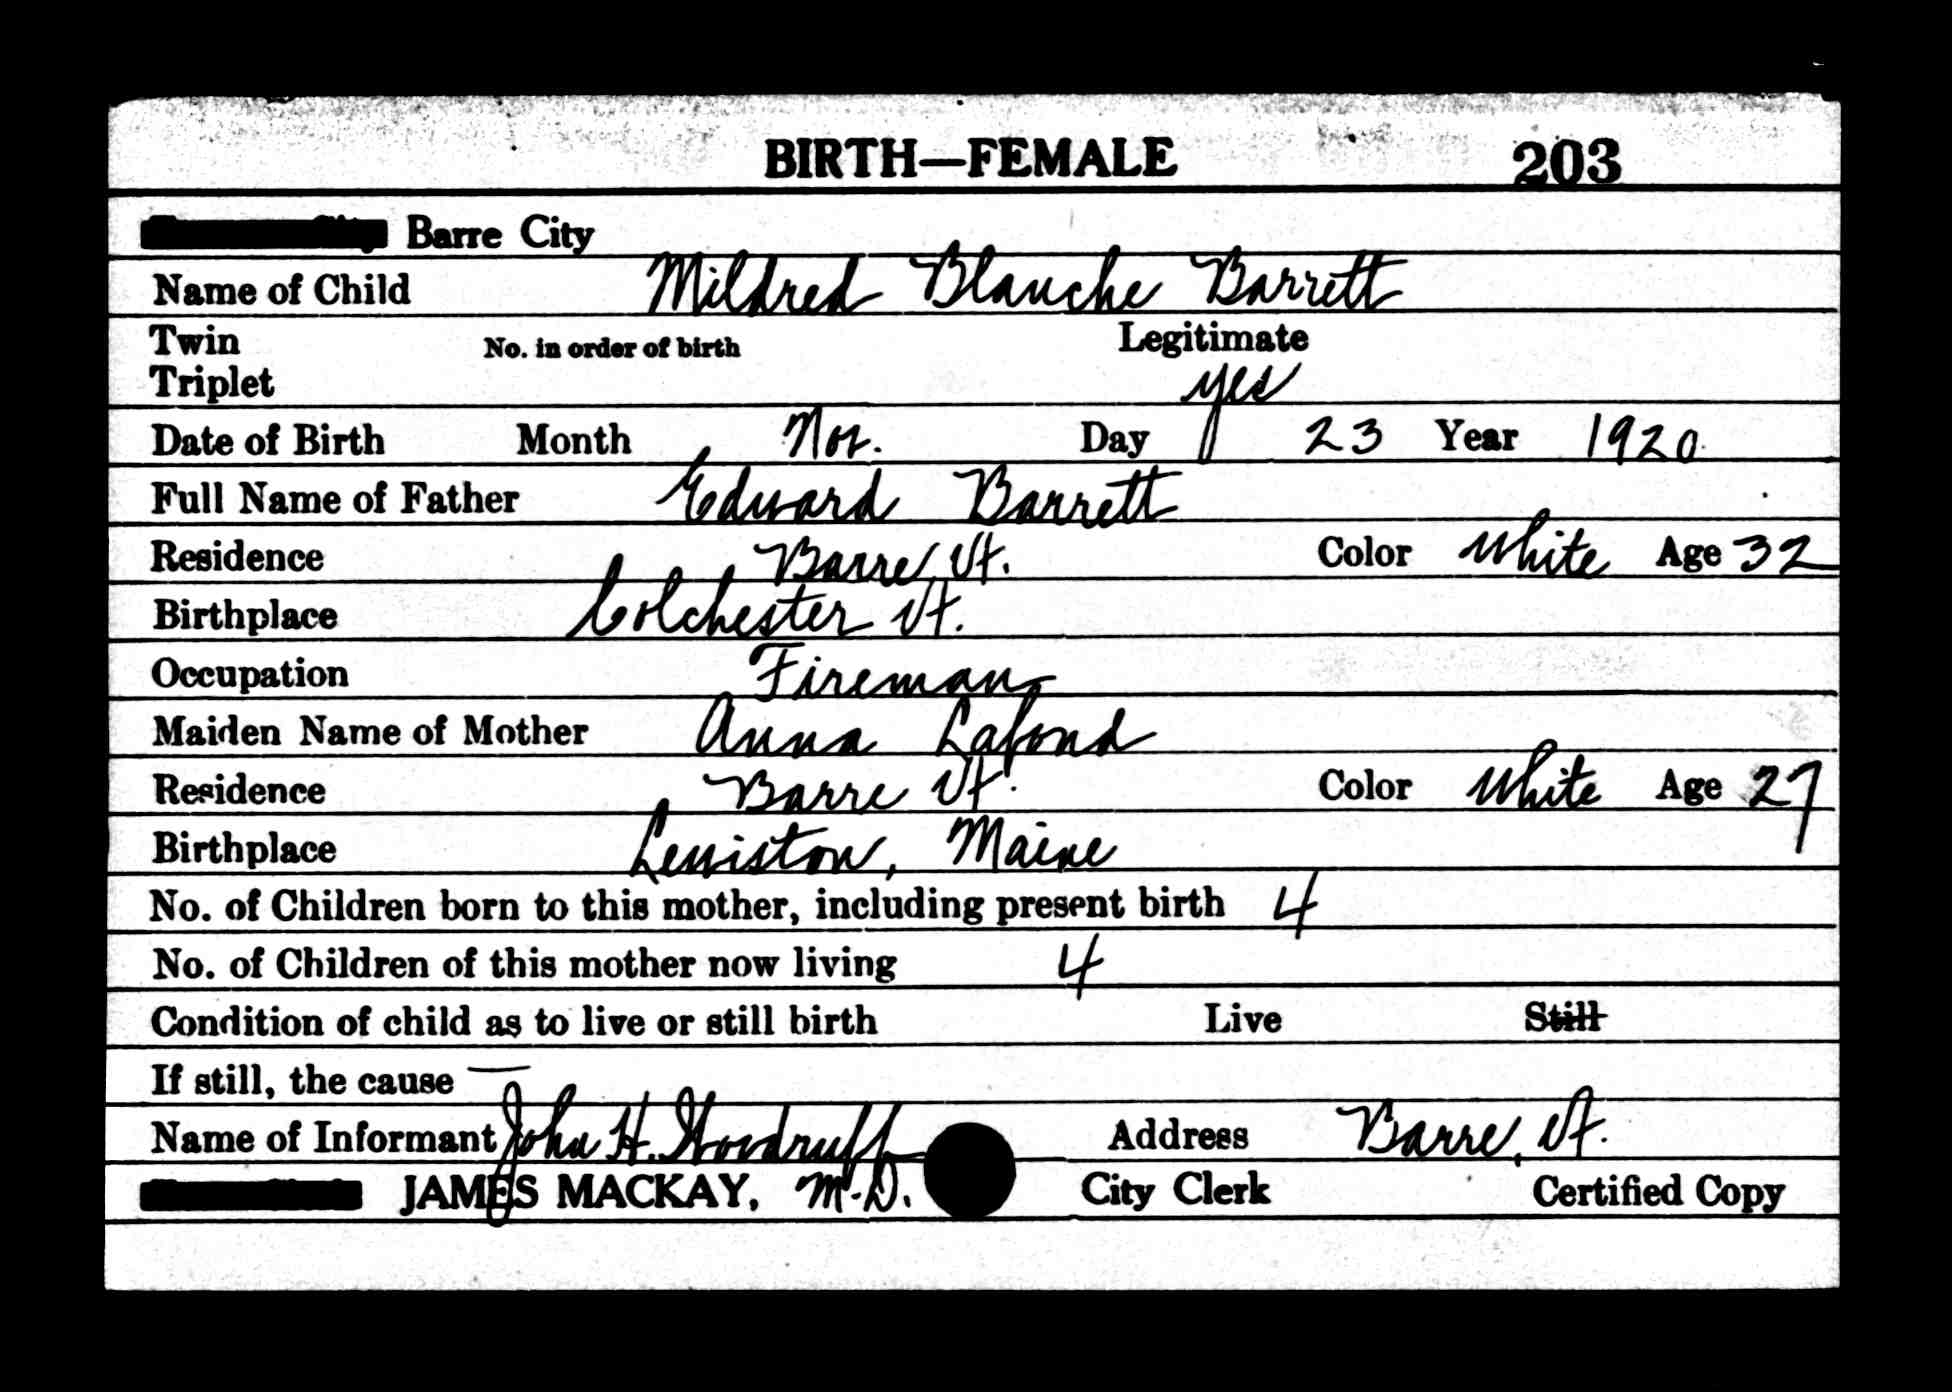 BIRTH—FEMALE 203
Barre City
Name of Child Mildred Blanche Barrett
Twin No. in order of birth Legitimate
Triplet yes
Date of Birth Month Nov. Day 23 Year 1920
Full Name of Father Edward Barrett
Residence Barre, Vt. Color White Age 32
Birthplace Colchester Vt.
Occupation Fireman
Maiden Name of Mother Anna Lafond
Residence Barre Vt. Color White Age 27
Birthplace Lewiston, Maine
No. of Children born to this mother, including present birth 4
No. of Children of this mother now living 4
Condition of child as to live or still birth Live Still
If still, the cause —
Name of Informant John H. Woodruff Address Barre, Vt.
JAMES MACKAY, M.D. City Clerk Certified Copy